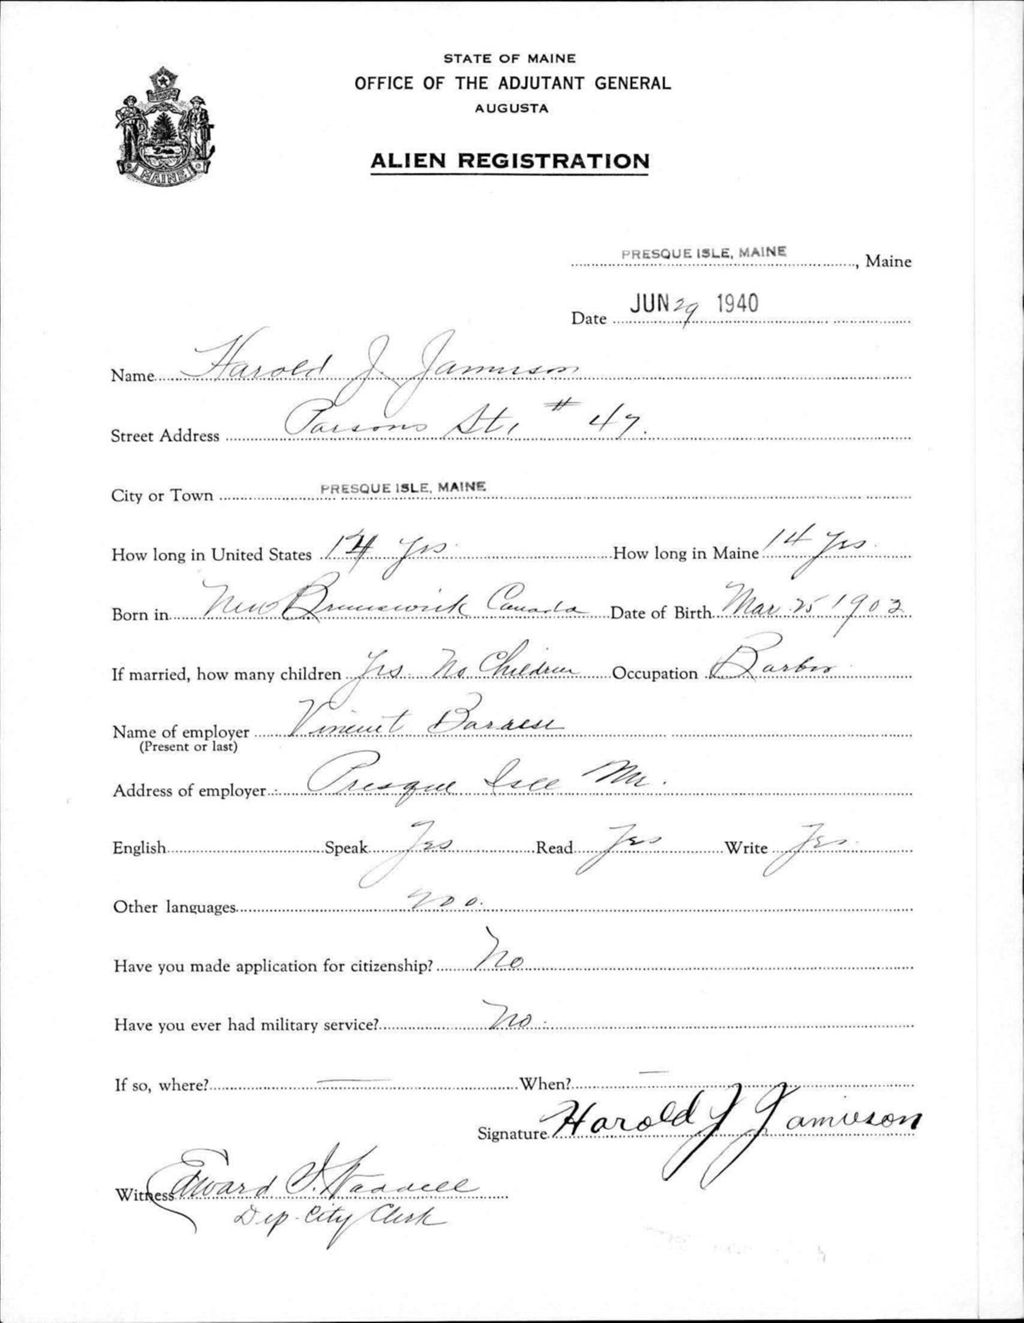 STATE OF MAINE
OFFICE OF THE ADJUTANT GENERAL
AUGUSTA
ALIEN REGISTRATION
MAINE
PRESQUE ISLE, MAINE, Maine
Date JUN 29 1940
Name Harold J. Jamieson
Street Address Parsons St, # 47.
City or Town PRESQUE ISLE, MAINE
How long in United States 14 Yrs. How long in Maine 14 Yrs.
Born in New Brunswick Canada Date of Birth Mar. 25 1902
If married, how many children Yes No Children Occupation Barber
Name of employer Vincent
(Present or last)
Address of employer Presque Isle Me.
English Speak Yes Read Yes Write Yes.
Other languages No.
Have you made application for citizenship? No
Have you ever had military service? No.
If so, where? — When? —
Signature Harold J Jamieson
Witness Edward
Dep. City Clerk